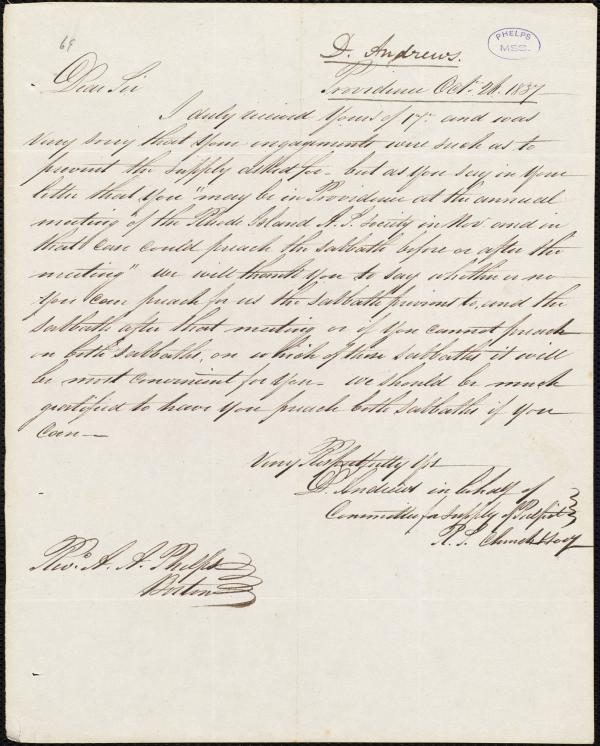 68
PHELPS
MSS.
D. Andrews.
Providence Oct. 26. 1837
Dear Sir
I duly received Yours of 17th and was
very sorry that Your engagements were such as to
prevent the supply asked for - but as you say in Your
letter that You "may be in Providence at the annual
meeting of the Rhode Island A. S. Society in Nov and in
that case could preach the Sabbath before or after the
meeting" we will thank You to say whether or no
You can preach for us the Sabbath previous to, and the
Sabbath after that meeting or if You cannot preach
on both Sabbaths, on which of those Sabbaths it will
be most convenient for You - we should be much
gratified to have You preach both Sabbaths if you
can -
Very Respectfully Yrs
D. Andrews in behalf of
Committee for supply of Pulpit
R. S. Church &
Rev. A. A. Phelps
Boston